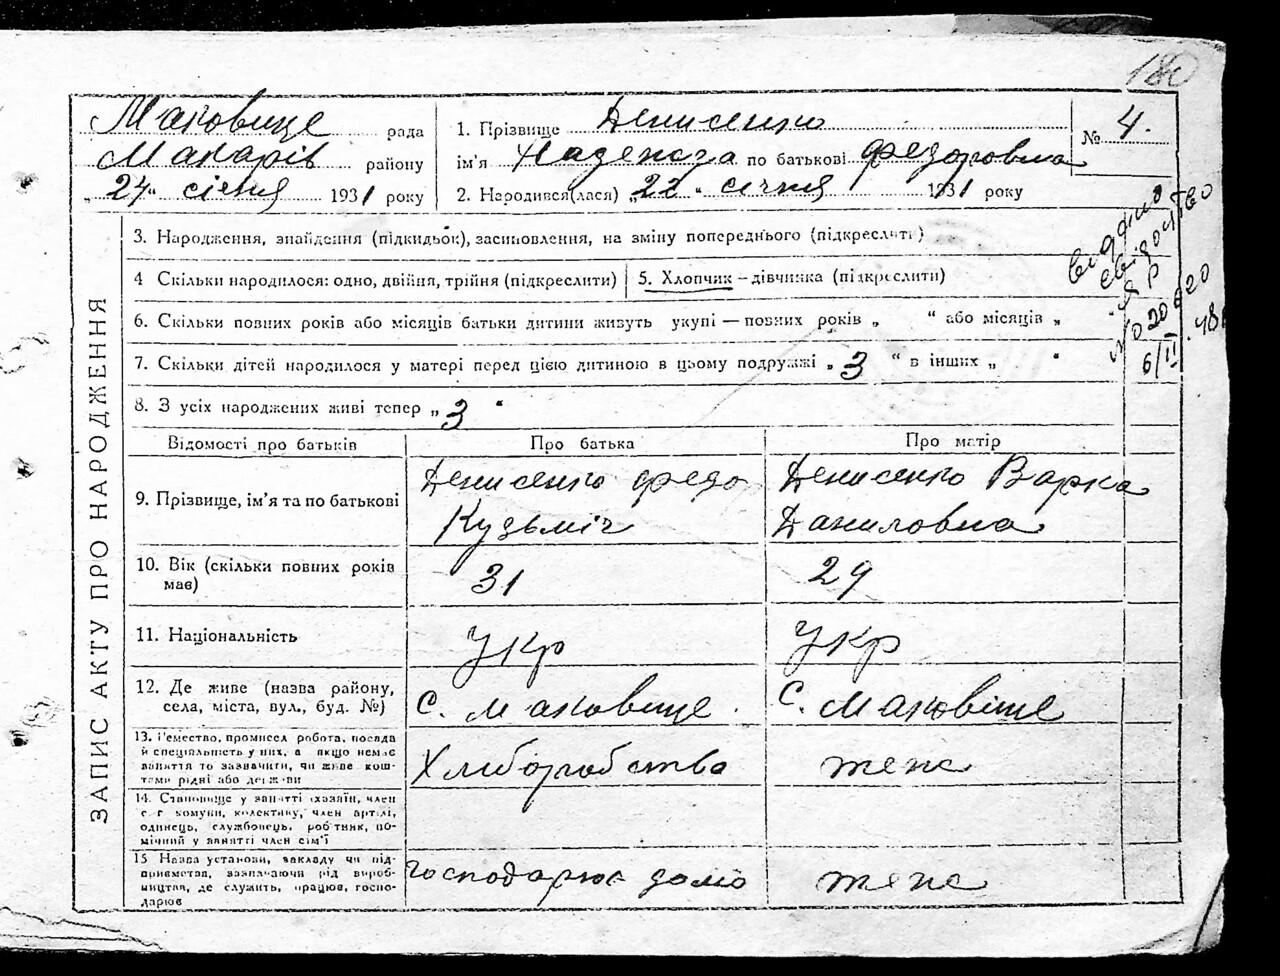 180
Маковище рада
Макарів району
„24“ січня 1931 року
1. Прізвище Денисенко
ім'я Надежда по батькові Федоровна
2. Народився(лася) „22“ січня 1931 року
№ 4.
видано
свідоцтво
№ 020620
6/II.48
ЗАПИС АКТУ ПРО НАРОДЖЕННЯ
3. Народження, знайдення (підкидьок), засиновлення, на зміну попереднього (підкреслити)
4 Скільки народилося: одно, двійня, трійня (підкреслити)
5. Хлопчик – дівчинка (підкреслити)
6. Скільки повних років або місяців батьки дитини живуть укупі — повних років „ “ або місяців „
7. Скільки дітей народилося у матері перед цією дитиною в цьому подружжі „3“ в інших „ “
8. З усіх народжених живі тепер „3“
Відомості про батьків
Про батька
Про матір
9. Прізвище, ім'я та по батькові
Денисенко Федо
Кузьміч
Денисенко Варка
Даниловна
10. Вік (скільки повних років
має)
31
29
11. Національність
Укр
Укр
12. Де живе (назва району,
села, міста, вул., буд. №)
с. Маковище.
с. Маковіще
13. Ремество, промисел робота, посада
й спеціяльність у них, а якщо немає
заняття то зазначити, чи живе кош-
тами рідні або держави
Хліборобства
тепс
14. Становище у занятті (хазяїн, член
с г комуни, колективу, член артілі,
одинець, службовець, робітник, по-
мічний у занятті член сім'ї
15 Назва установи, закладу чи під-
приємства, зазначаючи рід вироб-
ництва, де служить, працює, госпо-
дарює
господарює домо
тепс